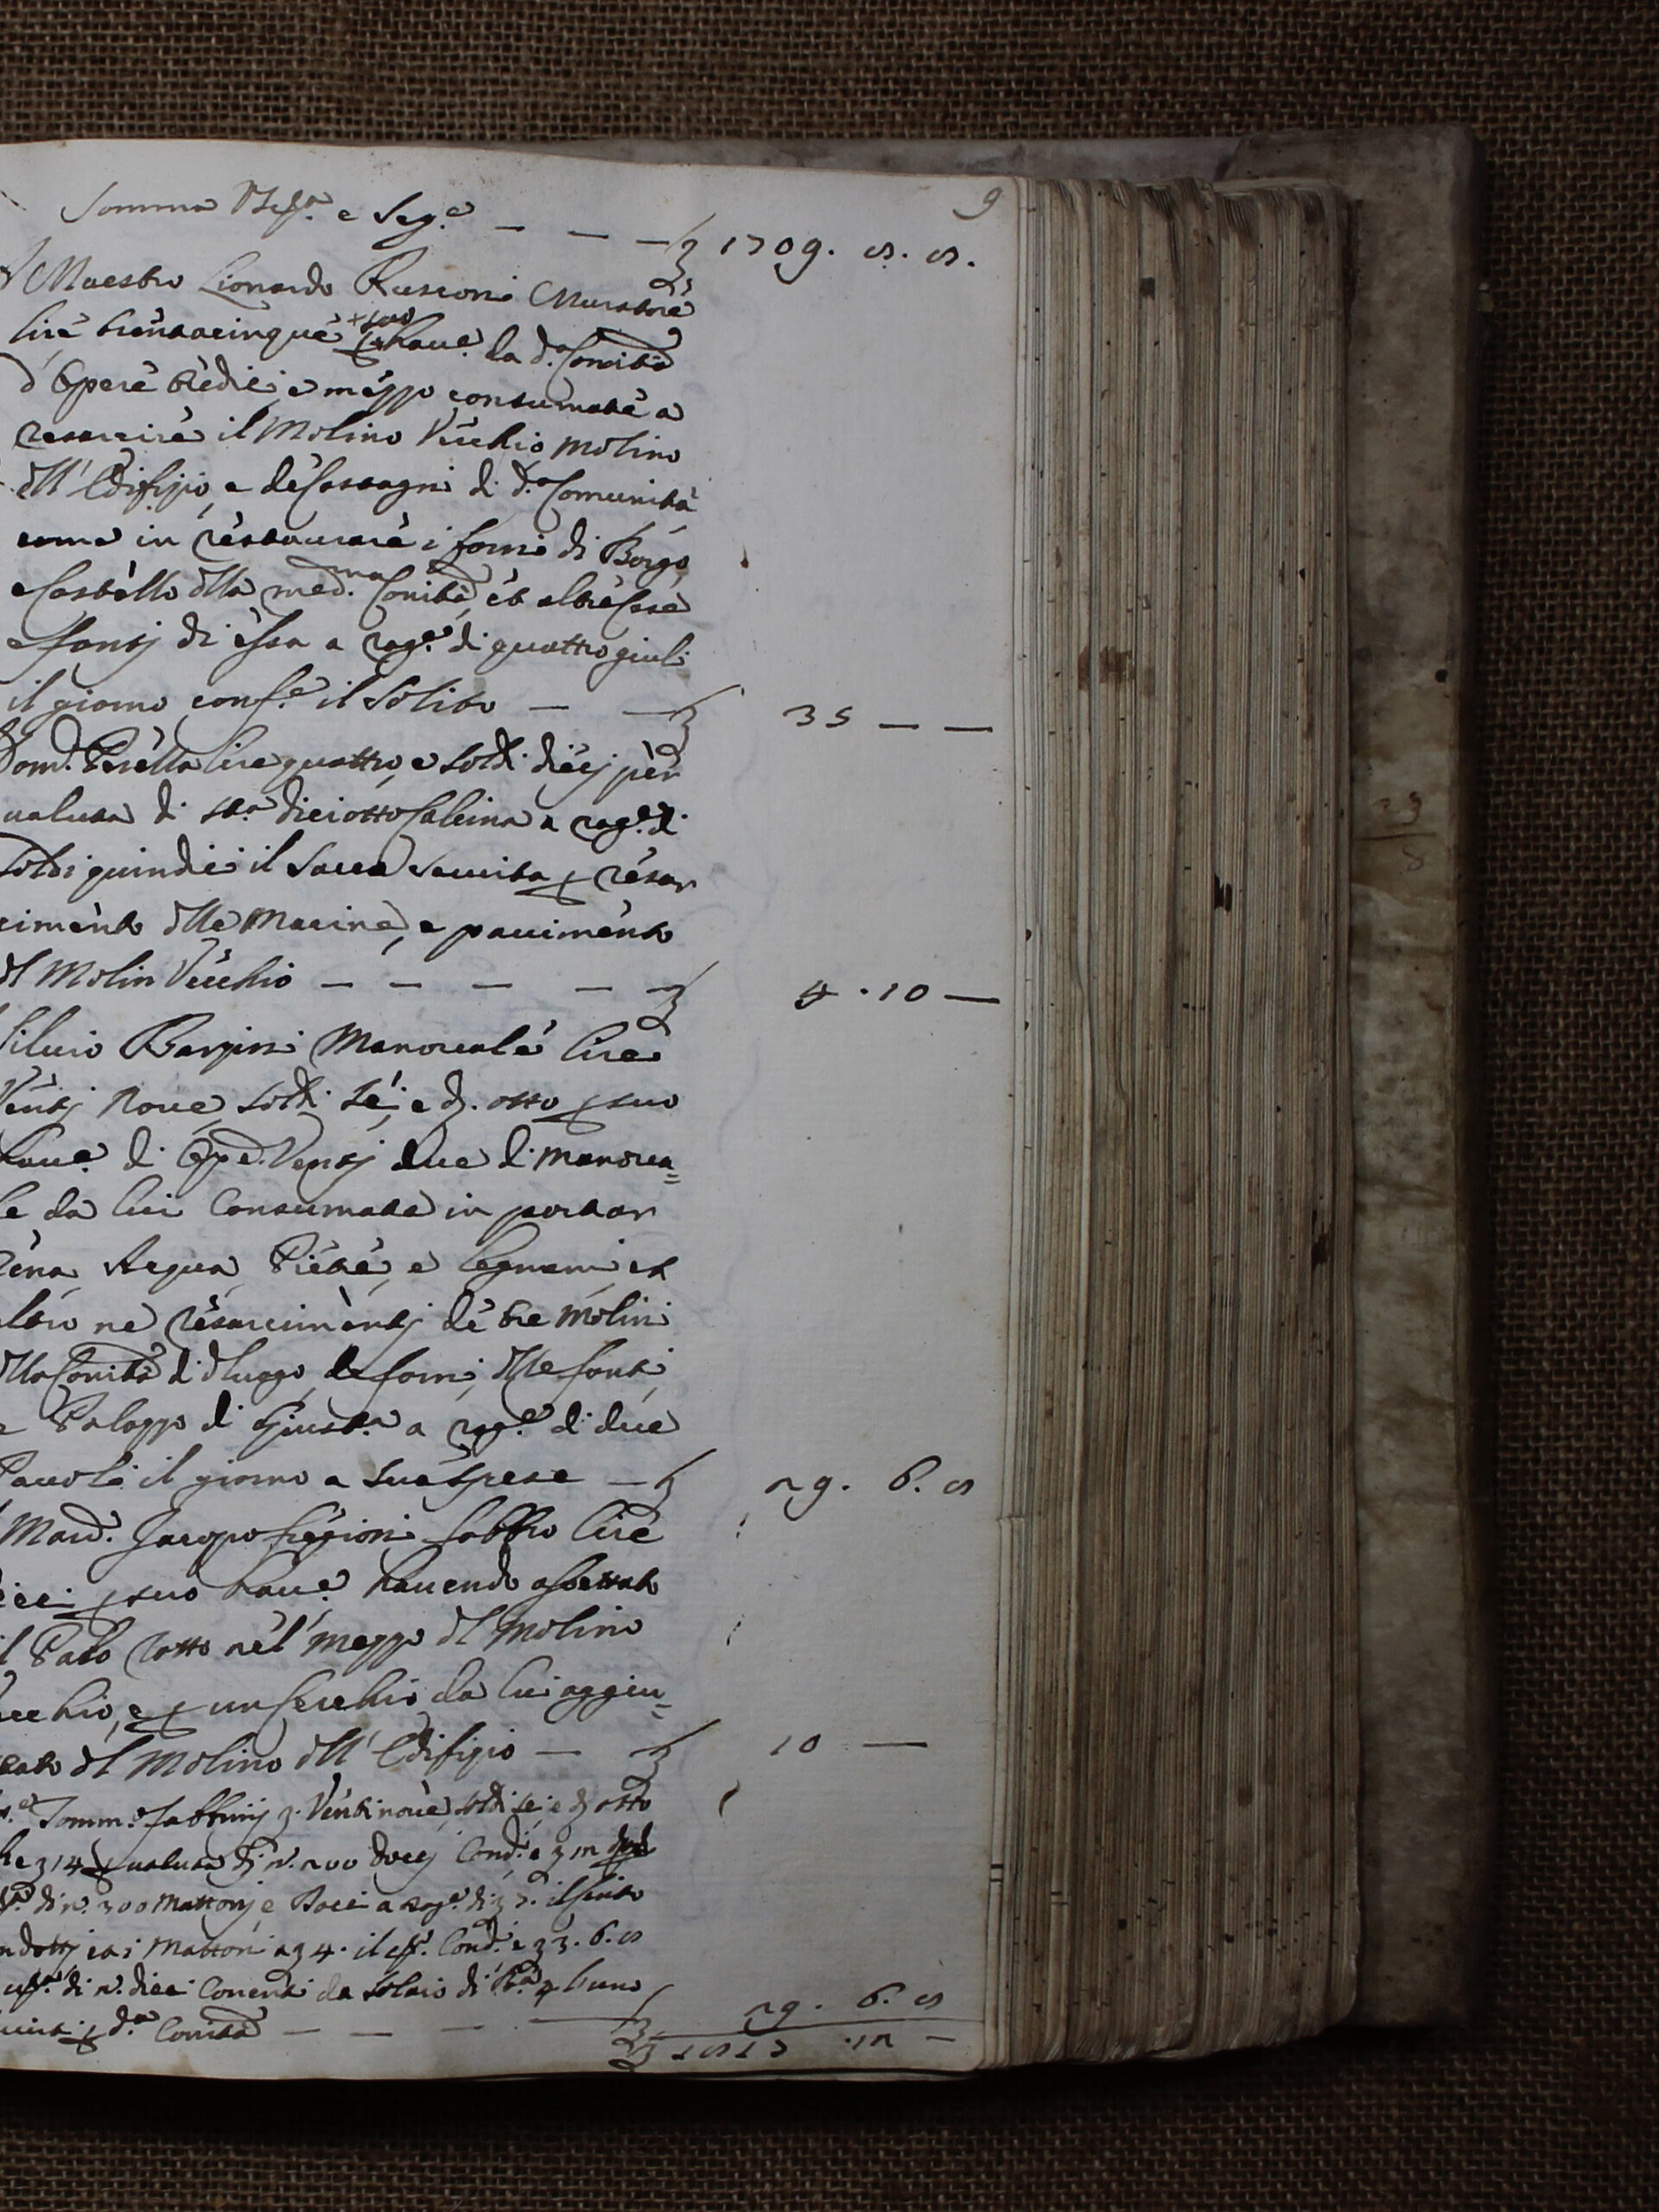 9
Somma e Seg.e — — — 1709. 8. 8.
Maestro Lionardo Rusconi Muratore
lire trentacinque p suo haue.e da d.a Comità
d'Opere tredici e mezzo consumate a
resarcire il Molino Vecchio molino
dll'Edifizio, e de Castagni di d.a Comunità
come in restaurare i forni di Borgo,
e Castello dlla med.ma Comità, et altre Case
e fontj di essa a rag.e di quattro giuli
il giorno conf.e il Solito — — 35 — —
Dom.o Perella lire quattro, e soldi diecj per
ualuta di sta diciotto Calcina a rag.e di
soldi quindici il Sacco seruita p resar
cimento dlle Macine, e pauimento
dl Molin Vecchio — — — — 4 . 10 —
Siluio Barzini Manouale lire
Ventj noue, soldi sei, e d. otto p suo
haue.e di Ope. Ventj due di manoua=
le da lui Consumate in portar
rena, Acqua, Pietre, e legnami, et
altro ne resarcimentj de tre molini
dlla Comità di dluogo, de forni, dlle fonti,
e Palazzo di Giust.a a rag.e di due
Pauoli il giorno a sue spese — 29. 6. 8
Mard. Jacopo fabbro lire
dieci p suo haue.e hauendo assettato
il Palo rotto nel mezzo dl Molino
Vecchio, e p un Cerchio da lui aggiu=
stato dl Molino dll'Edifizio — 10 —
Tomm.o Fabbrinj Ventinoue, soldi sei e d otto
che 14 p ualuta di n. 200 docej Cond. e
di n. 300 Mattonj e a rag.e di 7. il Cento
condottj et i Mattoni a 4. il Cond. e 3. 6. 8
di n. dieci Correnti da Solaio di 4 l'uno
p d.a Comità — — — — 29. 6. 8
1817 .12 —